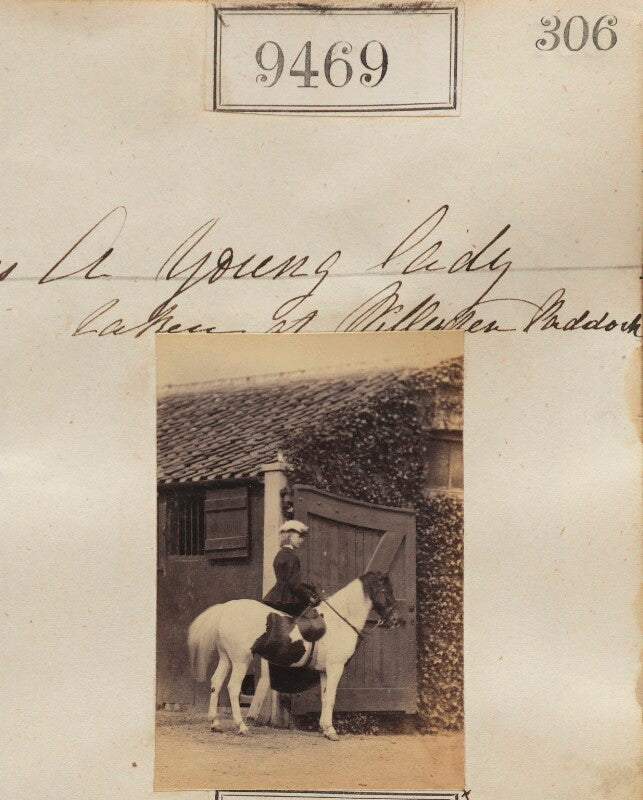 9469
306
A Young Lady
taken at Willesden Paddock